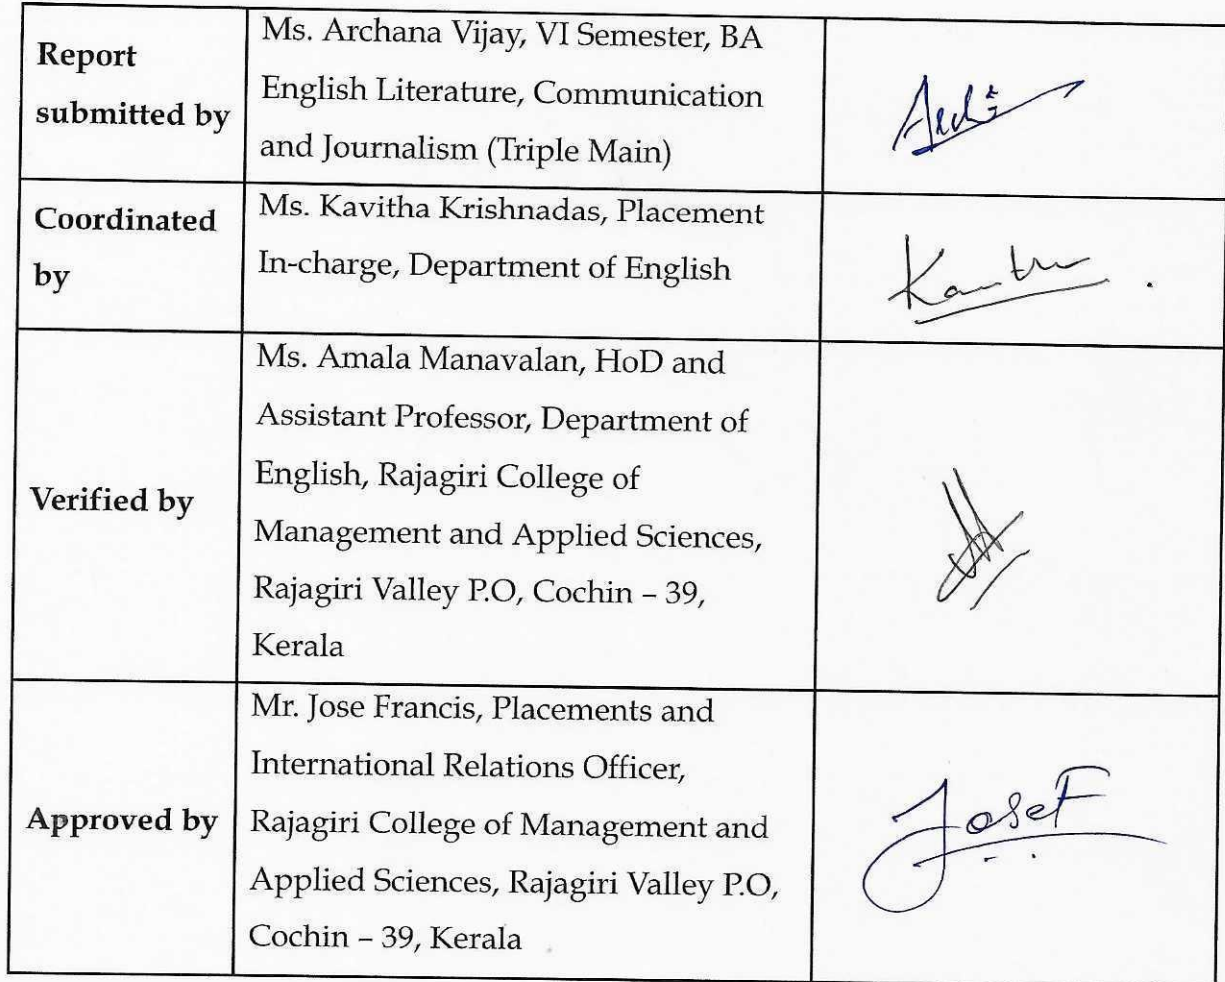 Report
submitted by
Ms. Archana Vijay, VI Semester, BA
English Literature, Communication
and Journalism (Triple Main)
Coordinated
by
Ms. Kavitha Krishnadas, Placement
In-charge, Department of English
Verified by
Ms. Amala Manavalan, HoD and
Assistant Professor, Department of
English, Rajagiri College of
Management and Applied Sciences,
Rajagiri Valley P.O, Cochin – 39,
Kerala
Approved by
Mr. Jose Francis, Placements and
International Relations Officer,
Rajagiri College of Management and
Applied Sciences, Rajagiri Valley P.O,
Cochin – 39, Kerala
JoseF